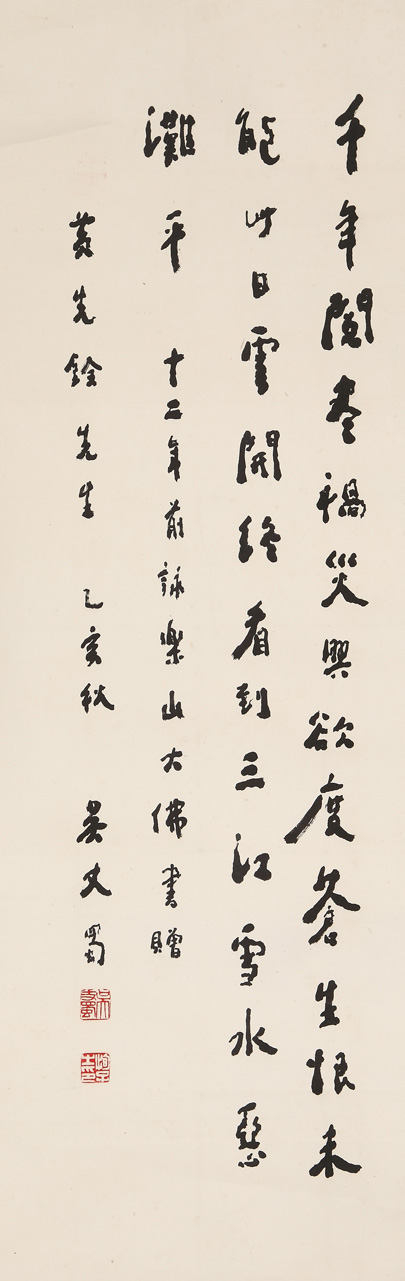 千年閱盡禍災興欲度蒼生恨未
能此日雲開終看到三江雪水惡
灘平 十二年前詠樂山大佛書贈
黃先銓先生 乙亥秋 吳丈蜀
吳丈蜀